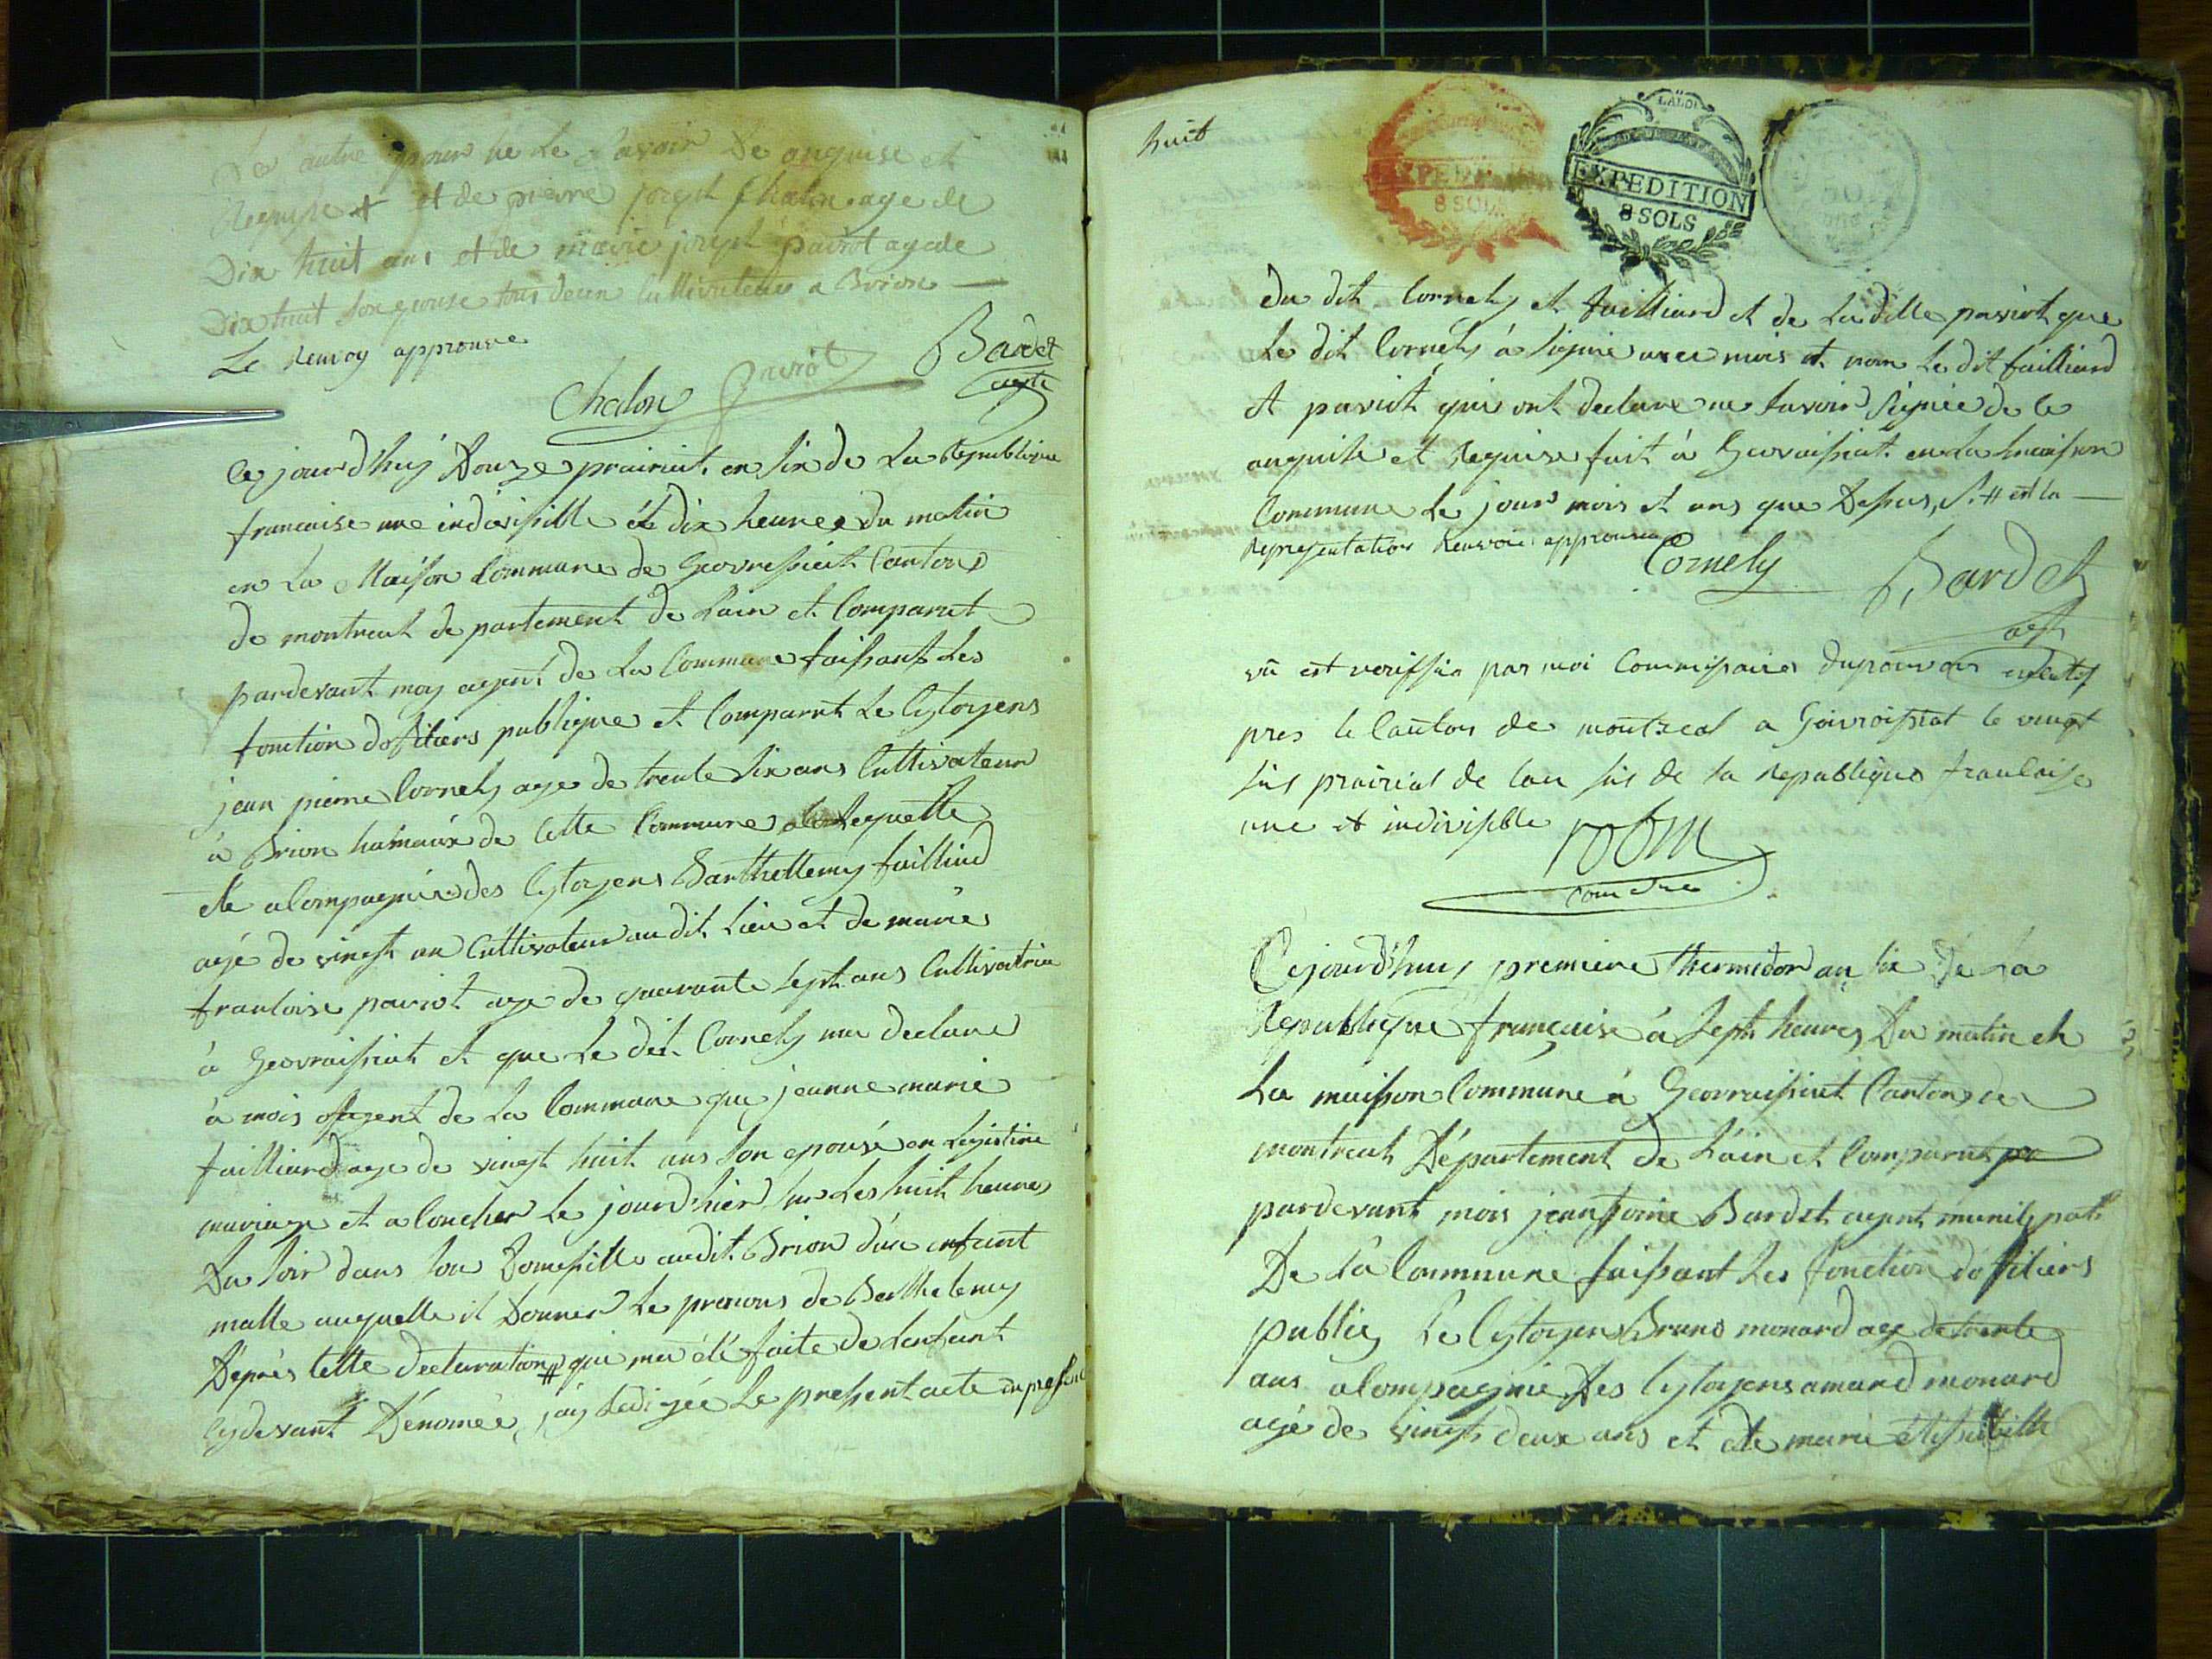 Les autre pour ne le savoir de enquise et
Requise + et de pierre joseph Chalon age de
Dix huit ans et de marie joseph pavirot agede
Dix huit son epouse tous deux Cultivateur a Brion
Le Renvoy approuve
Chalon pavirot Bardet
agt
Cejourd'huy Douze prairial en six de La Republique
francaise une indivisille et dix heures du matin
en La Maison Commune de Geovressiat Canton
de montreal departement de Lain et Comparut
pardevant moy agent de La Commune faissant Les
fonction dofficiers publique et Comparut Le Cytoyens
jean pierre Cornely age de trente six ans Cultivateur
à Brion hameaux de Cette Commune Lequelle
ete acompagnée des Cytoyens Barthellemy failliard
agé de vingt an Cultivateur audit Lieu et de marie
francoise paviot age de quarante sept ans Cultivatrice
à Geovraissiat et que Le dit Cornely ma declare
à mois agent de La Commune que jeanne marie
failliard age de vingt huit ans son epouse en Legistime
mariage et acoucher Le jourdhier sur Les huit heures
Du soir dans son Domesille audit Brion d'un enfant
malle auquelle il Donner Le prenons de Berthelemy
Deprès Cette declaration # qui ma été faite de Lenfant
Cydevant Dénomée, j'ay Redigée Le presentacte en presence
huit
EXPEDITION
8 SOLS
LA LOI
EXPEDITION
8 SOLS
du dit Cornely et failliard et de Ladille paviot que
Le dit Cornely à signé avec mois et non Le dit failliard
et paviot qui ont declare ne savoir signée de ce
anquise et Requise fait à Geovraissiat en La maison
Commune Le jour mois et ans que Dessus, S. # est la
Representation Renvoie approuvé
Cornely Bardet
agt
vû est veriffié par moi Commissaire dupouvoir executif
pres le Canton de montreal a Geovroissiat le vingt
six prairial de lan six de la Republique francaise
une et indivisible
robin
Comre
Cejourd'huy premiere thermidor an six de La
Republique française à Sept heures Du matin en
La maisson Commune à Geovraissiat Canton de
montreal Département de Lain et Comparut pa
pardevant mois jean Bardet agent municipale
De La Commune faissant Les fonction dofficiers
public Le Cytoyen Bruno monard age de trente
ans acompagnie Des Cytoyens amand monard
agé de vingt deux ans et de marie